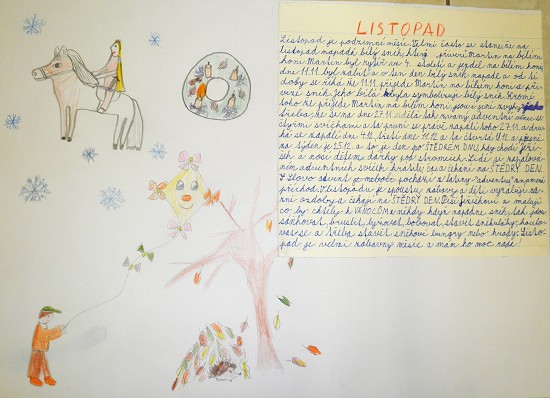 LISTOPAD
Listopad je podzimní měsíc. Velmi často se stane, že na
listopad napadá bílý sníh, který přiveze Martin na bílém
koni. Martin byl rytíř ve 4. století a jezdil na bílém koni,
dne 11.11. byl zabit a v ten den bílý sníh napadl a od té
doby se říká, že 11.11. přijede Martin na bílém koni a při-
veze sníh. Jeho bílá symbolizuje bílý sníh. Kromě
toho, že přijede Martin na bílém koni, jsou i jiné zvyky, jako
třeba, že se na dne 27.11. udělá tak zvaný adventní věnec se
čtyřmi svíčkami a ta první se právě zapálí toho 27.11. a druhá
se zapálí dne 4.12., třetí dne 11.12. a ta čtvrtá 18.12. a přesně
na týden je 25.12. a to je den po ŠTĚDRÉM DNU, kdy chodí Ježí-
šek a nosí dětem dárky pod stromeček. Lidé si zapalová-
ním adventních svíček krátily čas a čekání na ŠTĚDRÝ DEN.
Slovo advent je pochází z latiny "adventus" a znamená
příchod. V listopadu je spoustu zábavy a děti vyrábějí
ozdoby a čekají na ŠTĚDRÝ DEN. Píší Ježíškovi a malují
co by chtěly k VÁNOCŮM a někdy když napadne sníh, tak jdou
sáňkovat, bruslit, lyžovat, bobovat, stavět sněhuláky, koulo-
vat se a třeba stavět sněhové bunkry nebo hrady. Listo-
pad je velmi zábavný měsíc a mám ho moc ráda!